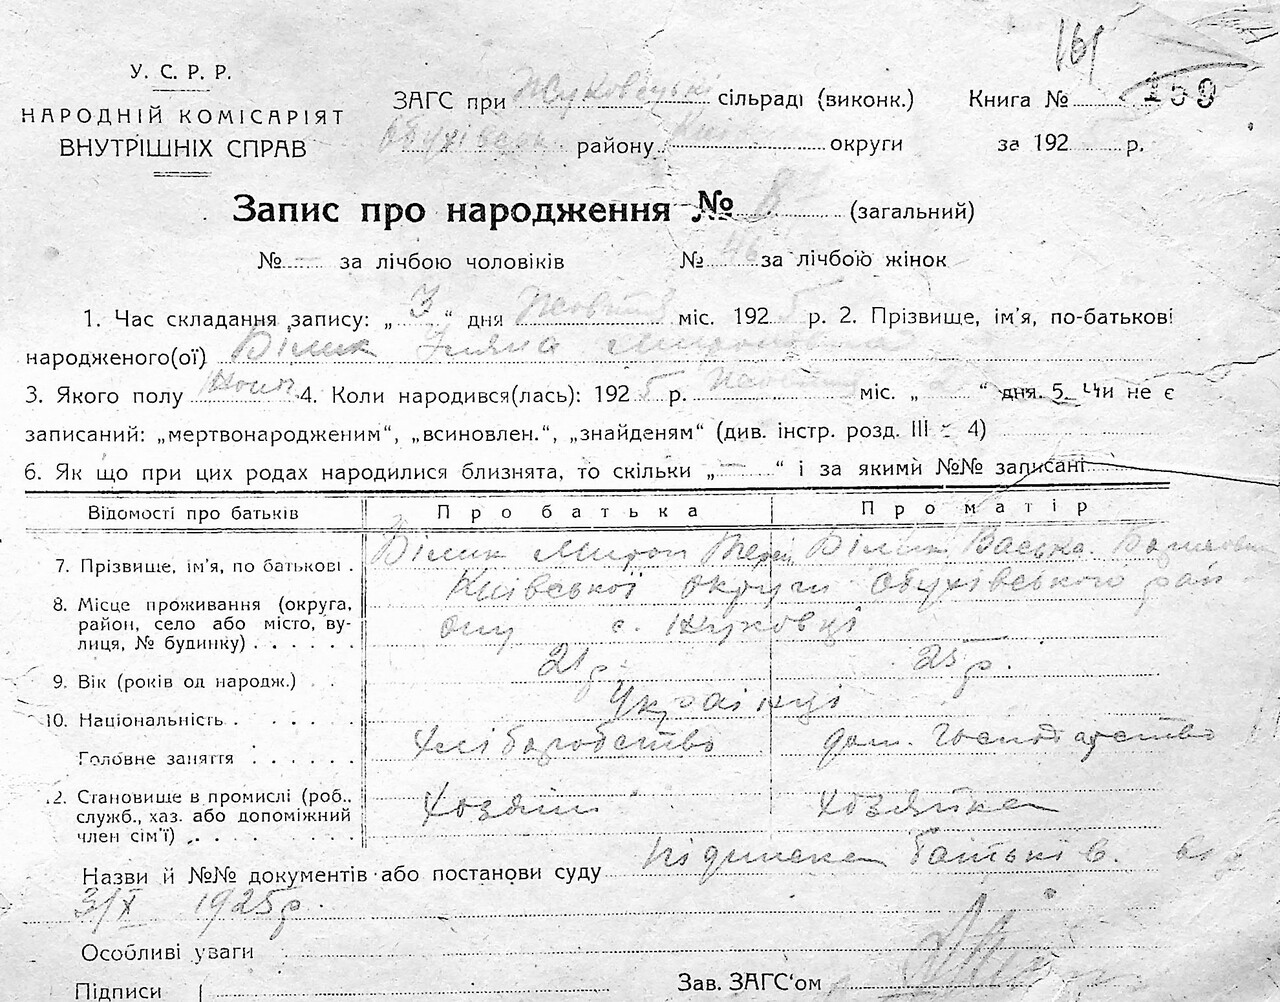 161
У. С. Р. Р.
НАРОДНІЙ КОМІСАРІЯТ
ВНУТРІШНІХ СПРАВ
ЗАГС при Жуковецькі сільраді (виконк.) Книга № 159
Обухівськ району округи за 192 р.
Запис про народження № 87 (загальний)
№ — за лічбою чоловіків № 46 за лічбою жінок
1. Час складання запису: „ 3 “ дня Жовтня міс. 192 5 р. 2. Прізвище, ім'я, по-батькові
народженого(ої) Білик Уляна Миронівна
3. Якого полу Жоноч. 4. Коли народився(лась): 192 5 р. Жовтня міс. „ 2 “ дня. 5. Чи не є
записаний: „мертвонародженим“, „всиновлен.“, „знайденям“ (див. інстр. розд. III - 4)
6. Як що при цих родах народилися близнята, то скільки „ — “ і за якими №№ записані
Відомості про батьків Про батька Про матір
7. Прізвище, ім'я, по батькові . Білик Мирон Білик Васька
8. Місце проживання (округа, Київської округи Обухівського рай-
район, село або місто, ву- ону с. Жуковці
лиця, № будинку) . . . . . .
9. Вік (років од народж.) . . 21 р. 25 р.
10. Національність . . . . . Українці
Головне заняття . . . . . . Хліборобство дом. Господарство
.2. Становище в промислі (роб., хозяїн хозяйка
служб., хаз. або допоміжний
член сім'ї) . . . . . . .
Назви й №№ документів або постанови суду Підписка батьків. від
3/X 1925 р.
Особливі уваги
Підписи Зав. ЗАГС'ом